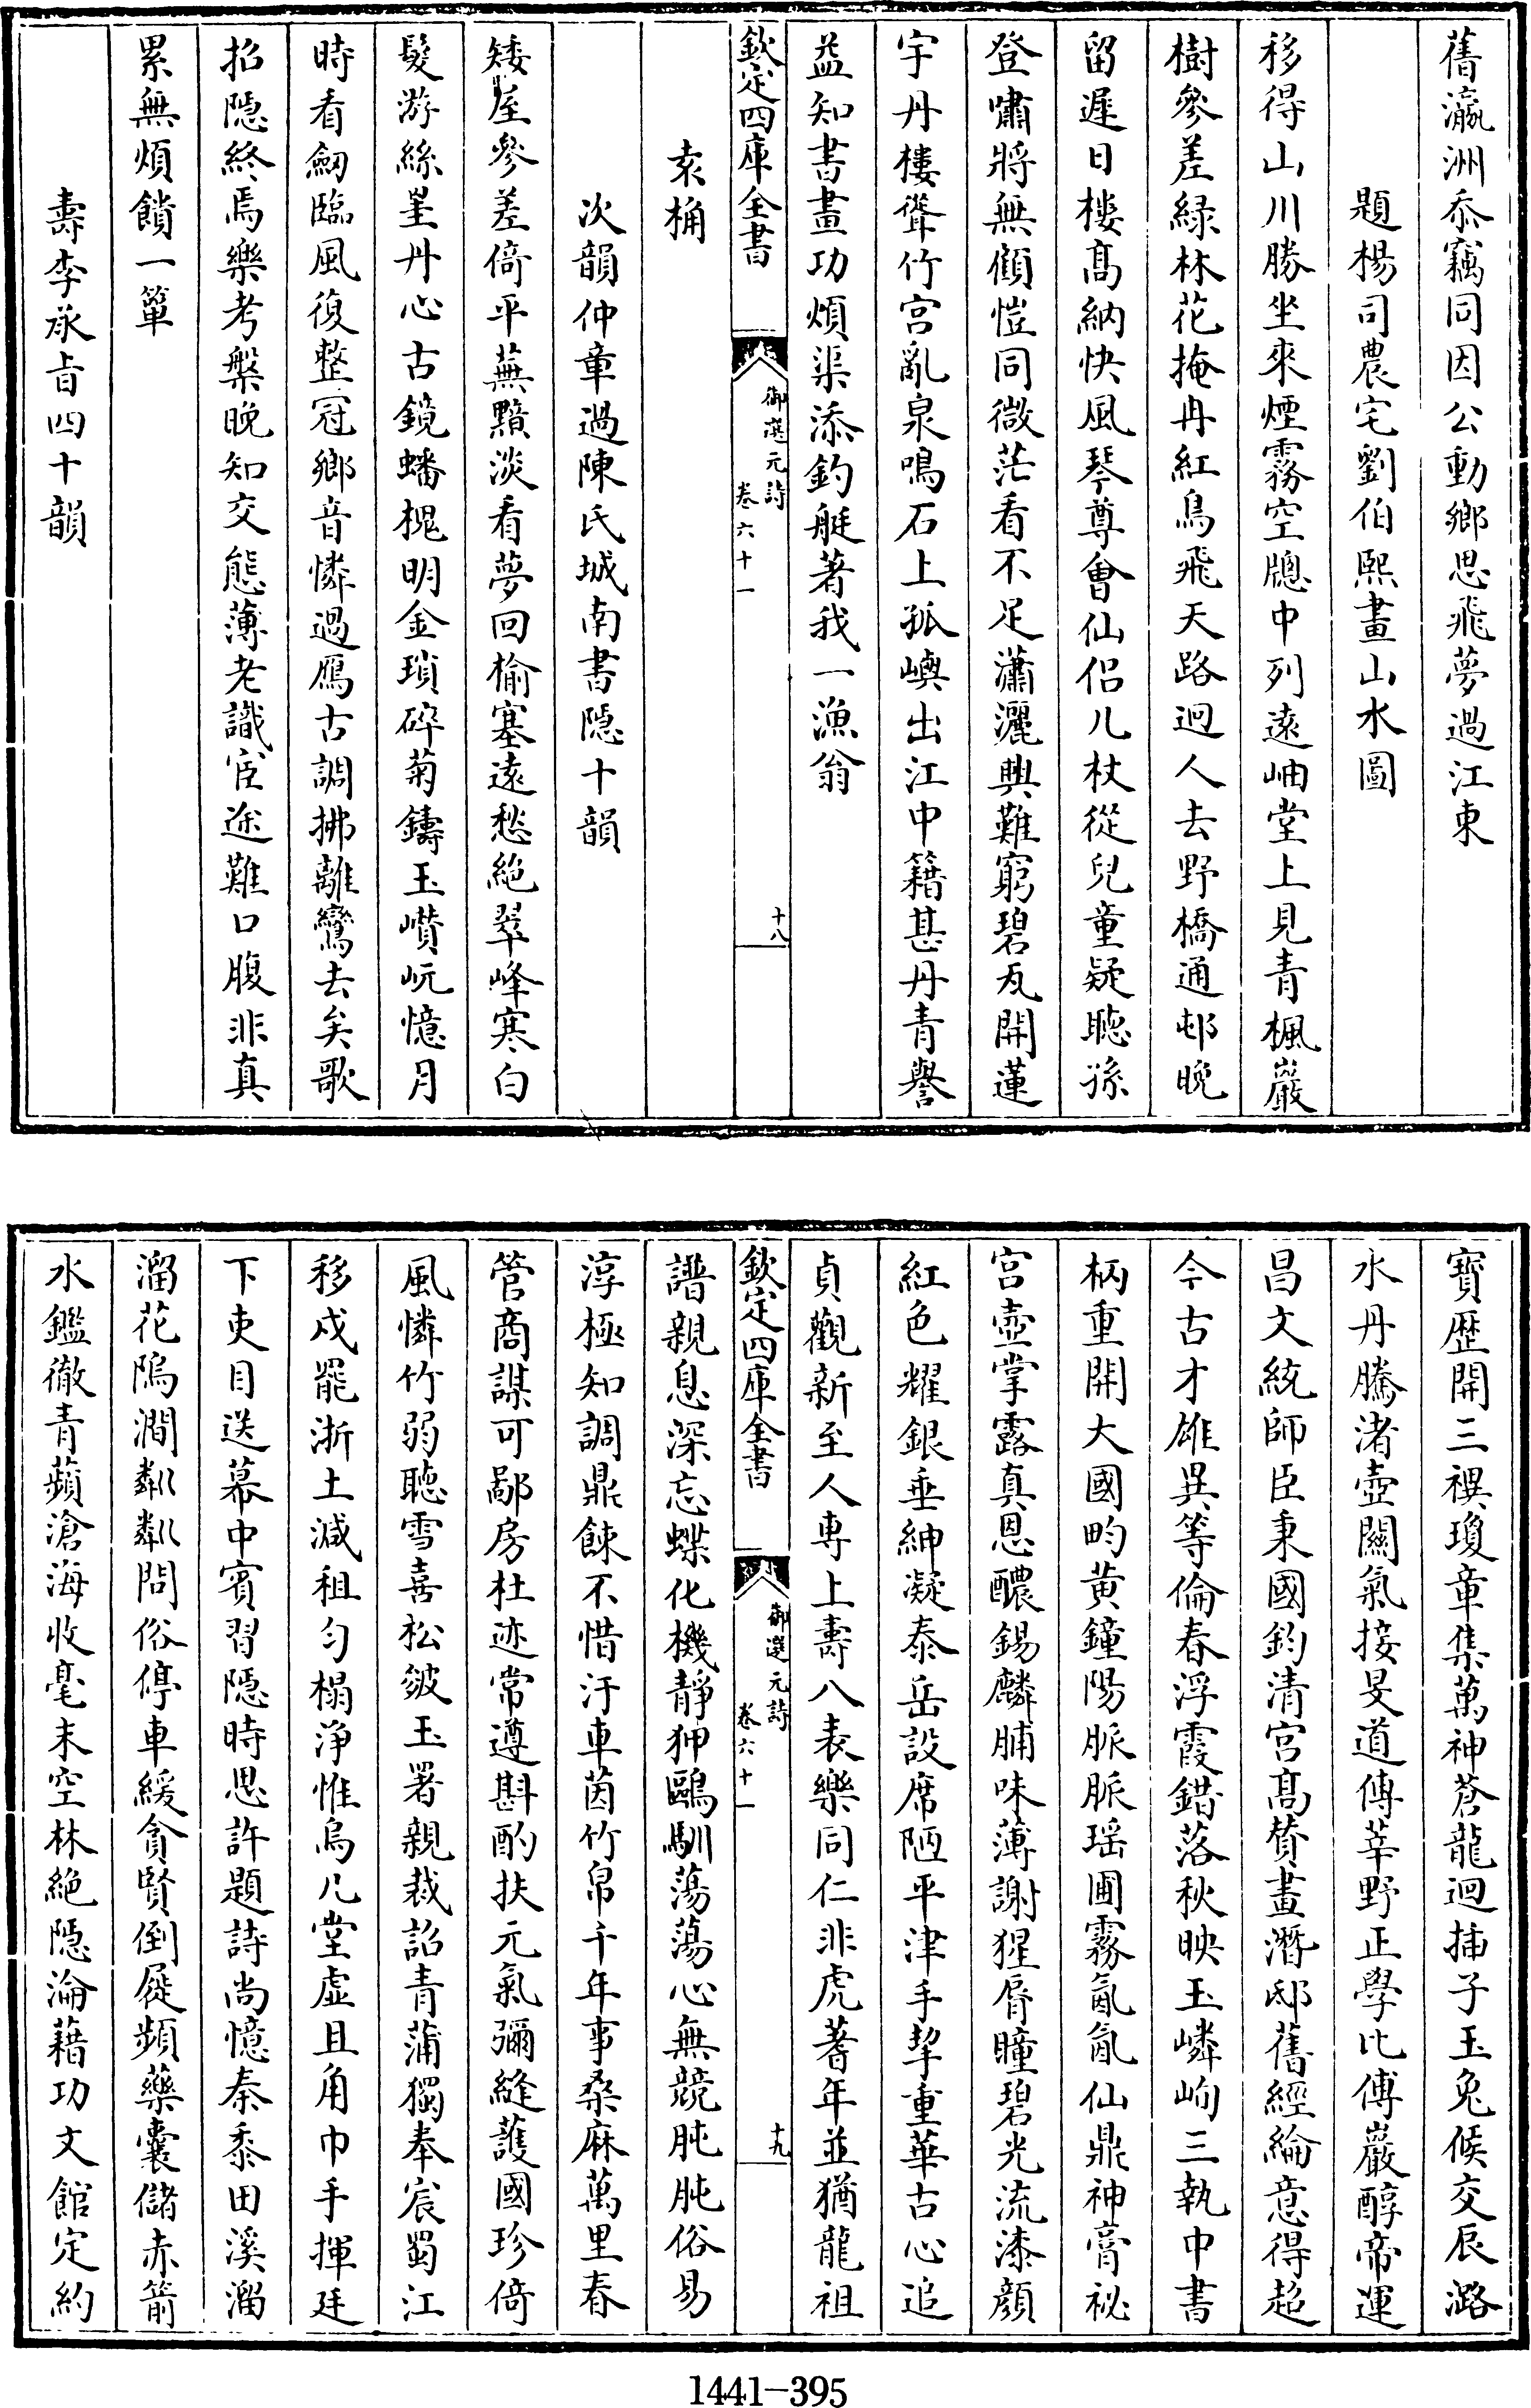 舊瀛洲忝竊同因公動鄉思飛夢過江東
題楊司農宅劉伯熙畫山水圖
移得山川勝坐來煙霧空牕中列遠岫堂上見青楓巖
樹參差緑林花掩冉紅鳥飛天路迥人去野橋通邨晚
留遲日樓髙納快風琴尊會仙侣几杖從兒童疑聽孫
登嘯將無顧愷同微茫看不足瀟灑興難窮碧瓦開蓮
宇丹樓聳竹宫亂泉鳴石上孤嶼出江中籍甚丹青譽
益知書畫功煩渠添釣艇著我一漁翁
欽定四庫全書
御選元詩
卷六十一
十八
袁桷
次韻仲章過陳氏城南書隠十韻
矮屋參差倚平蕪黯淡看夢回榆塞遠愁絶翠峰寒白
髮游絲罣丹心古鏡蟠槐明金瑣碎菊鑄玉巑岏憶月
時看劒臨風復整冠鄉音憐過鴈古調拂離鸞去矣歌
招隠終焉樂考槃晚知交態薄老識宦途難口腹非真
累無煩饋一簞
壽李承旨四十韻
寳歴開三禩瓊章集萬神蒼龍迴揷子玉兔候交辰潞
水丹騰渚壺關氣接旻道傳莘野正學比傅巖醇帝運
昌文統師臣秉國鈞清宫髙賛畫潛邸舊經綸意得超
今古才雄異等倫春浮霞錯落秋映玉嶙峋三執中書
柄重開大國畇黄鐘陽脈脈瑶圃霧氤氤仙鼎神膏祕
宫壺掌露真恩醲錫麟脯味薄謝猩脣瞳碧光流漆顔
紅色耀銀垂紳凝泰岳設席陋平津手挈重華古心追
貞觀新至人専上壽八表樂同仁非虎蓍年並猶龍祖
欽定四庫全書
御選元詩
卷六十一
十九
譜親息深忘蝶化機靜狎鷗馴蕩蕩心無競肫肫俗易
淳極知調鼎餗不惜汙車茵竹帛千年事桑麻萬里春
管商謀可鄙房杜迹常遵斟酌扶元氣彌縫護國珍倚
風憐竹弱聽雪喜松皴玉署親裁詔青蒲獨奉宸蜀江
移戍罷浙土減租匀榻浄惟烏几堂虚且角巾手揮廷
下吏目送幕中賓習隠時思許題詩尚憶秦黍田溪溜
溜花隖澗粼粼問俗停車緩貪賢倒屣頻藥囊儲赤箭
水鑑徹青蘋滄海收毫末空林絶隠淪藉功文館定約
1441-395